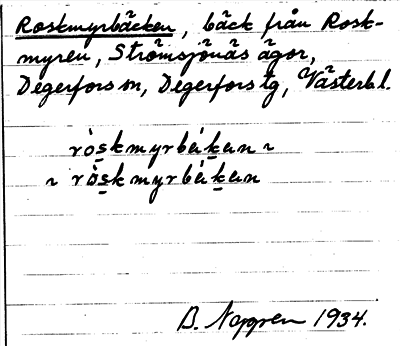 Roskmyrbäcken, bäck från Rosk-
myren, Strömsjönäs ägor,
Degerfors sn, Degerfors tg, Västerb. l.
ròs̱kmyrbáḵen ~
~ rò̀s̱kmyrbáḵen
B. Noggren 1934.